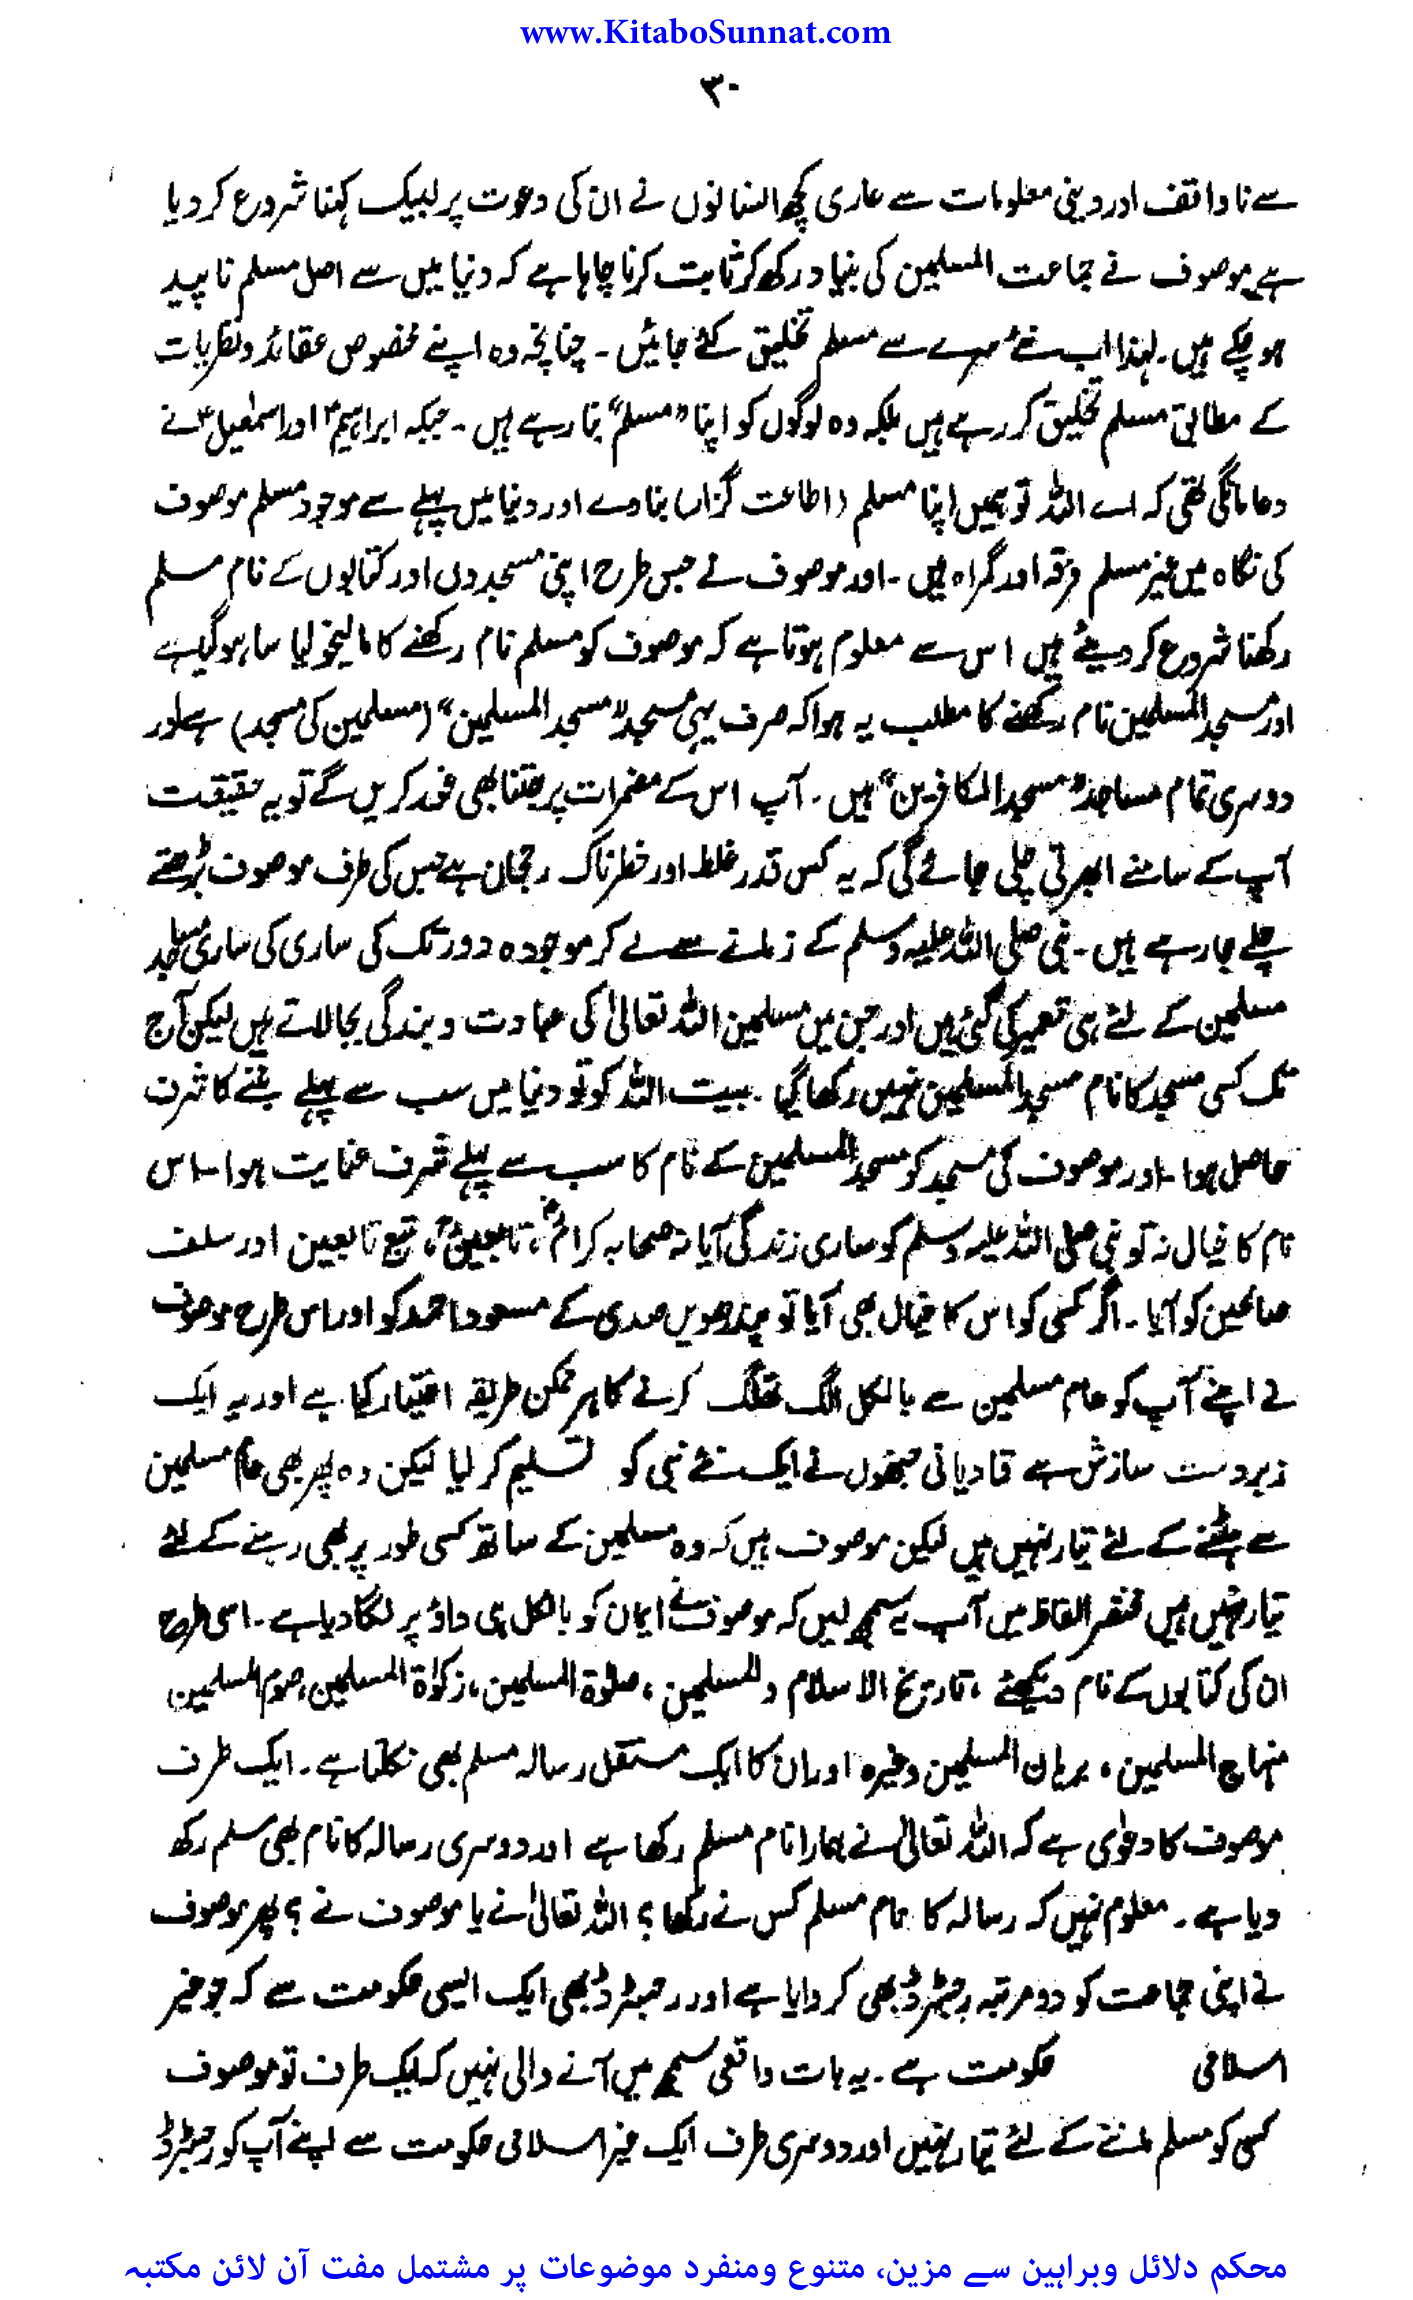 www.KitaboSunnat.com
۳۰
سے ناواقف اور دینی معلومات سے عاری کچھ انسانوں نے ان کی دعوت پر لبیک کہنا شروع کر دیا
ہے موصوف نے جماعت المسلمین کی بنیاد رکھ کر ثابت کرنا چاہا ہے کہ دنیا میں سے اصل مسلم ناپید
ہو چکے ہیں۔ لہذا اب نئے سرے سے مسلم تخلیق کئے جائیں۔ چنانچہ وہ اپنے مخصوص عقائد ونظریات
کے مطابق مسلم تخلیق کر رہے ہیں بلکہ وہ لوگوں کو اپنا "مسلم" بنا رہے ہیں۔ جبکہ ابراہیمؑ اور اسمٰعیلؑ نے
دعا مانگی تھی کہ اے اللہ تو ہمیں اپنا مسلم (اطاعت گزار) بنا دے اور دنیا میں پہلے سے موجود مسلم موصوف
کی نگاہ میں غیر مسلم فرقہ اور گمراہ ہیں۔ اور موصوف نے جس طرح اپنی مسجدوں اور کتابوں کے نام مسلم
رکھنا شروع کر دیئے ہیں اس سے معلوم ہوتا ہے کہ موصوف کو مسلم نام رکھنے کا مالیخولیا سا ہو گیا ہے
اور مسجد المسلمین نام رکھنے کا مطلب یہ ہوا کہ صرف یہی مسجد "مسجد المسلمین" (مسلمین کی مسجد) ہے اور
دوسری تمام مساجد "مسجد الکافرین" ہیں۔ آپ اس کے مضمرات پر جتنا بھی غور کریں گے تو یہ حقیقت
آپ کے سامنے ابھرتی چلی جائے گی کہ یہ کس قدر غلط اور خطرناک رجحان ہے جس کی طرف موصوف بڑھتے
چلے جا رہے ہیں۔ نبی صلی اللہ علیہ وسلم کے زمانے سے لے کر موجودہ دور تک کی ساری کی ساری مساجد
مسلمین کے لئے ہی تعمیر کی گئی ہیں اور جن میں مسلمین اللہ تعالیٰ کی عبادت و بندگی بجالاتے ہیں لیکن آج
تک کسی مسجد کا نام مسجد المسلمین نہیں رکھا گیا۔ بیت اللہ کو تو دنیا میں سب سے پہلے بننے کا شرف
حاصل ہوا۔ اور موصوف کی مسجد کو مسجد المسلمین کے نام کا سب سے پہلے شرف عنایت ہوا۔ اس
نام کا خیال نہ تو نبی صلی اللہ علیہ وسلم کو ساری زندگی آیا نہ صحابہ کرامؓ، تابعینؒ، تبع تابعین اور سلف
صالحین کو آیا۔ اگر کسی کو اس کا خیال بھی آیا تو پندرھویں صدی کے مسعود احمد کو اور اس طرح موصوف
نے اپنے آپ کو عام مسلمین سے بالکل الگ تھلگ کرنے کا ہر ممکن طریقہ اختیار کیا ہے اور یہ ایک
زبردست سازش ہے قادیانی جنھوں نے ایک نئے نبی کو تسلیم کر لیا لیکن وہ پھر بھی عام مسلمین
سے ہٹنے کے لئے تیار نہیں ہیں لیکن موصوف ہیں کہ وہ مسلمین کے ساتھ کسی طور پر بھی رہنے کے لئے
تیار نہیں ہیں مختصر الفاظ میں آپ یہ سمجھ لیں کہ موصوف نے ایمان کو بالکل ہی داؤ پر لگا دیا ہے۔ اسی طرح
ان کی کتابوں کے نام دیکھئے، تاریخ الاسلام والمسلمین، صلوٰۃ المسلمین، زکوٰۃ المسلمین، صوم المسلمین
منہاج المسلمین، برہان المسلمین وغیرہ اور ان کا ایک مستقل رسالہ مسلم بھی نکلتا ہے۔ ایک طرف
موصوف کا دعوٰی ہے کہ اللہ تعالیٰ نے ہمارا نام مسلم رکھا ہے اور دوسری رسالہ کا نام بھی مسلم رکھ
دیا ہے۔ معلوم نہیں کہ رسالہ کا نام مسلم کس نے رکھا؟ اللہ تعالیٰ نے یا موصوف نے؟ پھر موصوف
نے اپنی جماعت کو دو مرتبہ رجسٹرڈ بھی کروایا ہے اور رجسٹرڈ بھی ایک ایسی حکومت سے کہ جو غیر
اسلامی حکومت ہے۔ یہ بات واقعی سمجھ میں آنے والی نہیں کہ ایک طرف تو موصوف
کسی کو مسلم ماننے کے لئے تیار نہیں اور دوسری طرف ایک غیر اسلامی حکومت سے اپنے آپ کو رجسٹرڈ
محکم دلائل وبراہین سے مزین، متنوع ومنفرد موضوعات پر مشتمل مفت آن لائن مکتبہ